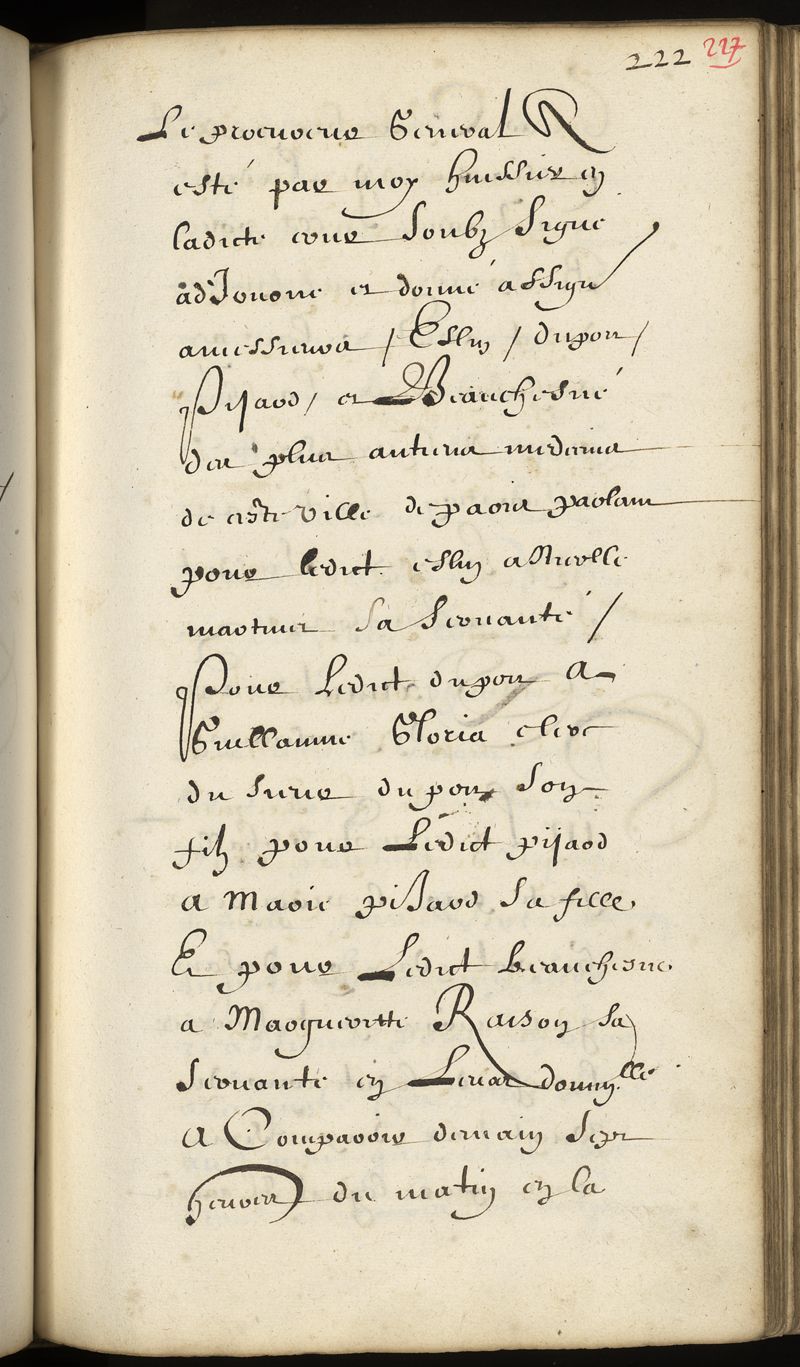 222 227
Le procureur General A
esté par moy huissier en
ladicte cour soubz signé
adJourné et donné assign
a messieurs / Eslin / dupon /
Pijard / et Beauchesne
des plus antiens medecins
de ceste ville de paris parlant
pour ledict eslin a Nicolle
martinet sa servante /
Pour Ledict dupon A
Guillaume Gloria clerc
du sieur dupon son
filz pour Ledict pijard
A Marie piJard sa fille
Et pour Ledict beauchesne
a Margueritte Raison sa
servante en Leurs domicille
A Comparoir demain sept
heures du matin en la